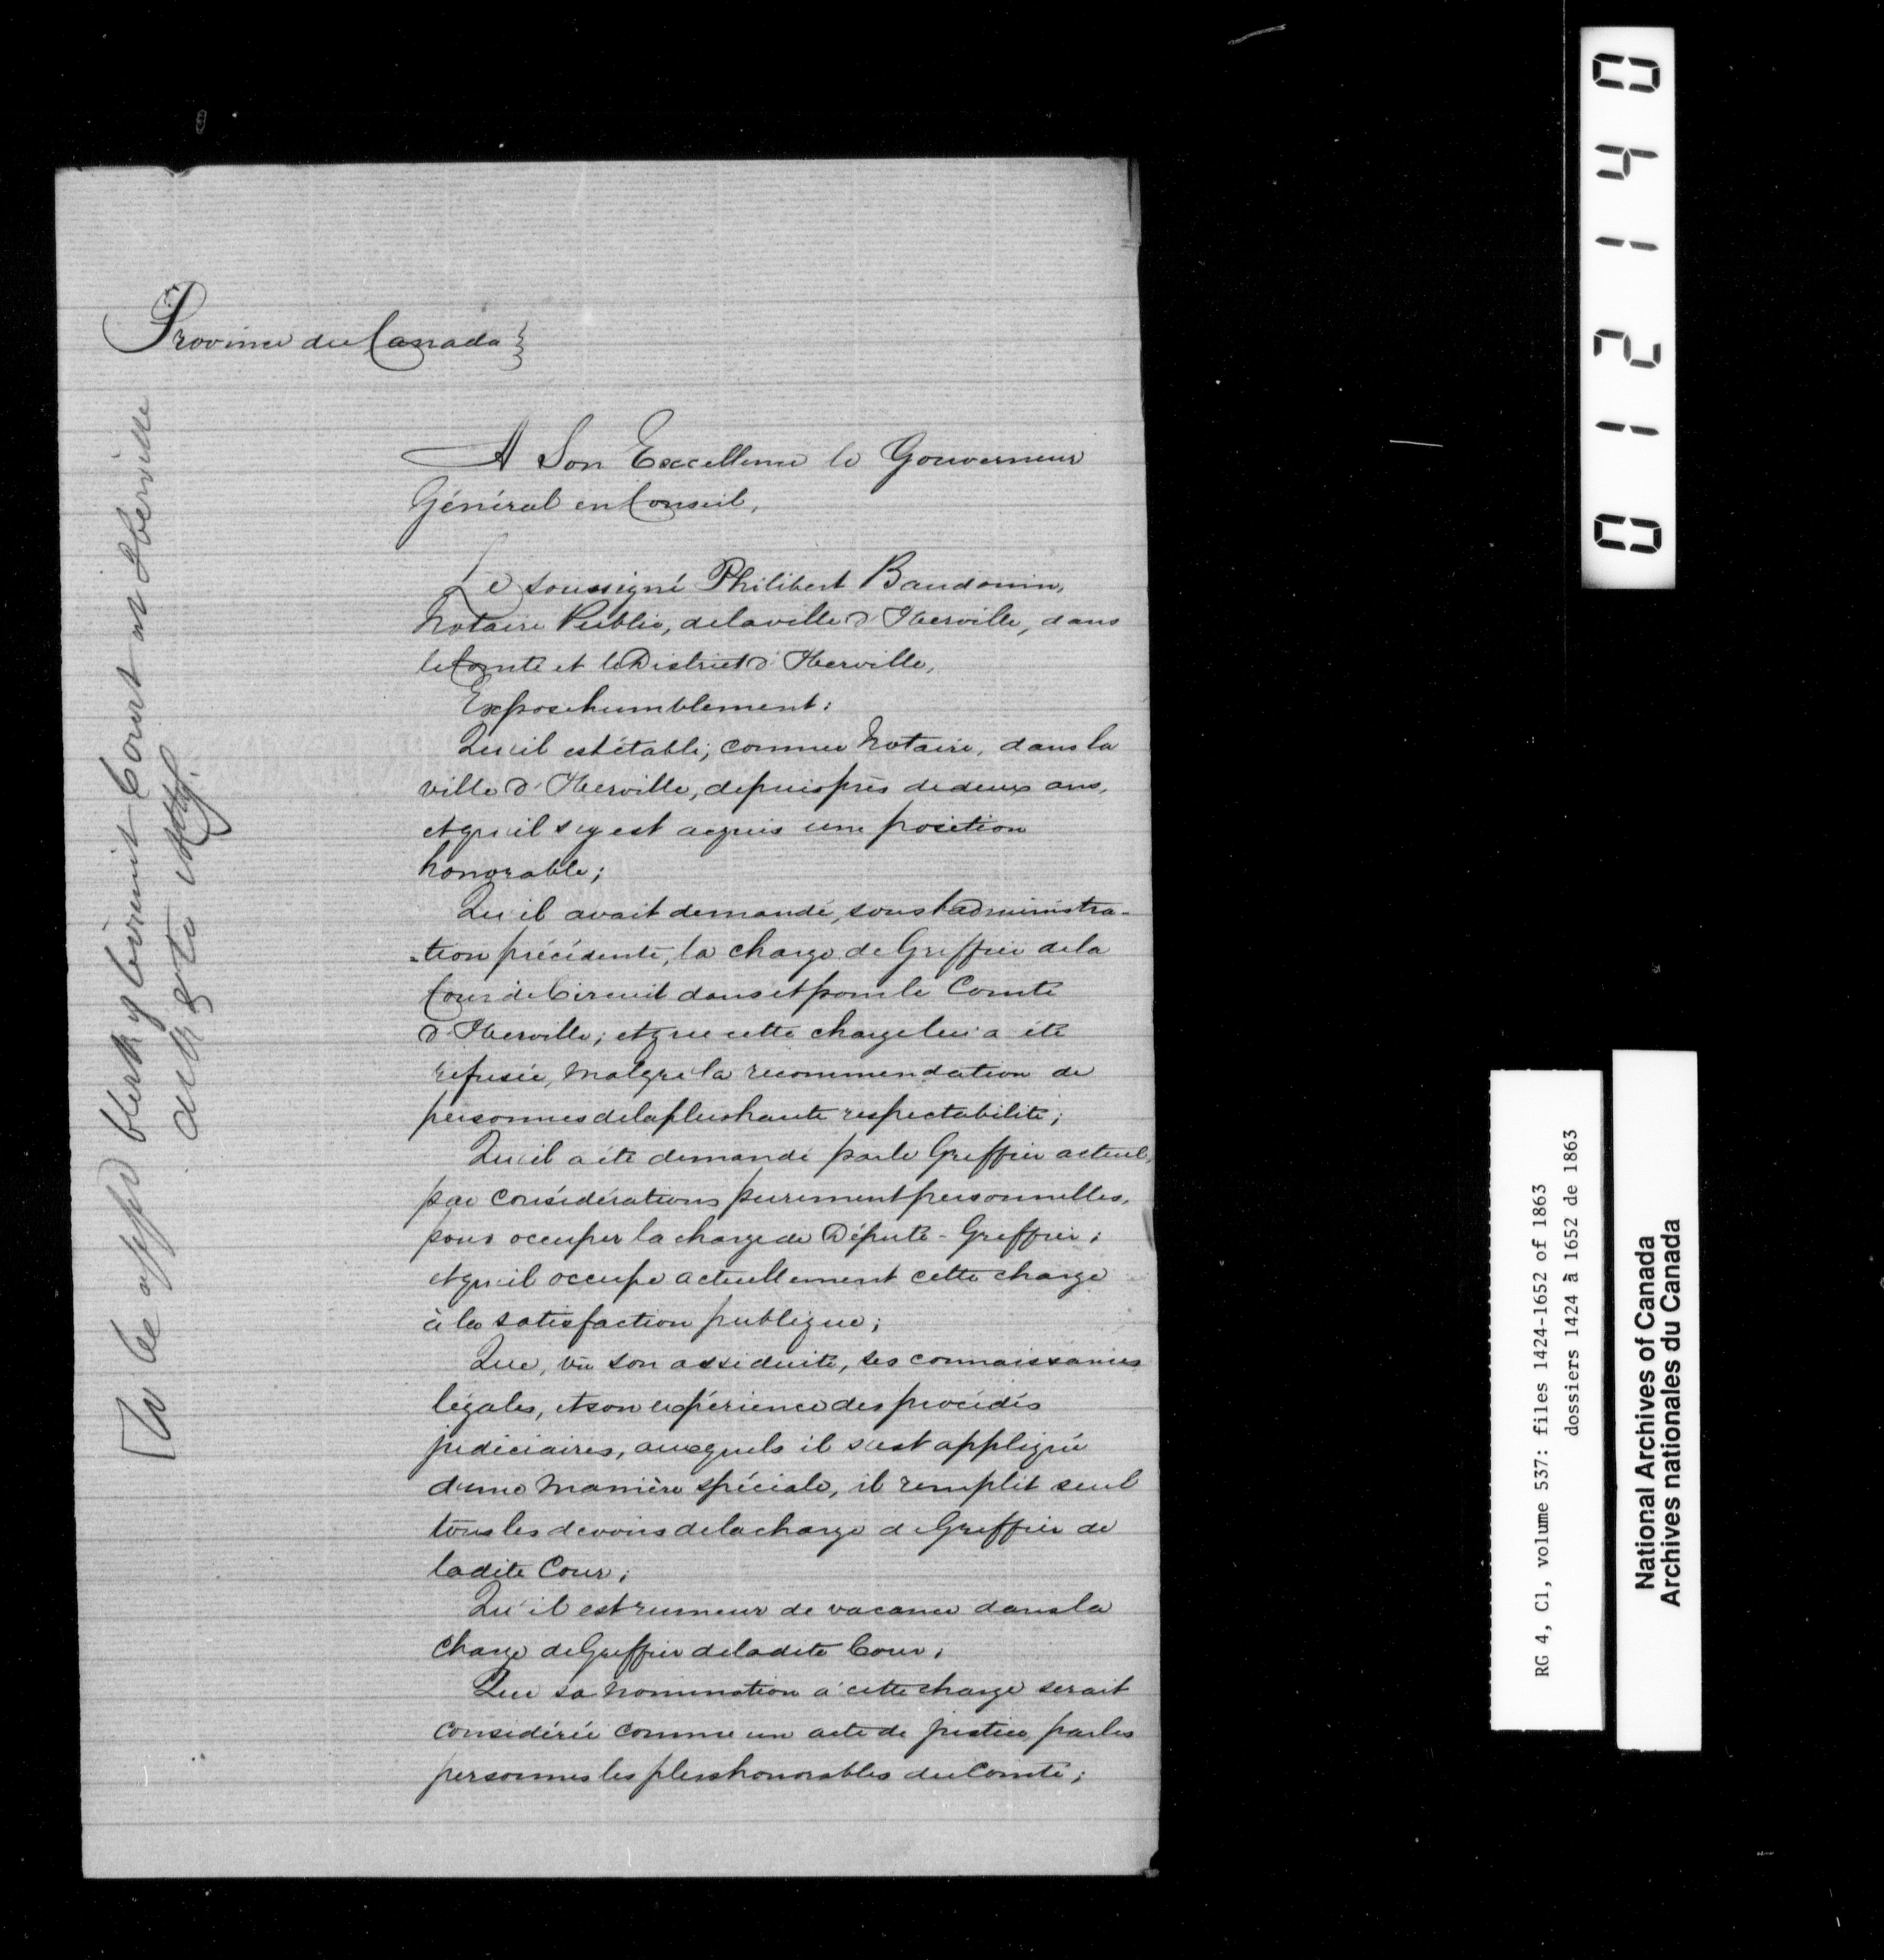 Province du Canada
A Son Excellence le Gouverneur
Général en Conseil,
Le soussigné Philibert Baudouin,
Notaire Public, de la ville d'Iberville, dans
le Comté et le District d'Iberville,
Expose humblement:
Qu'il est établi, comme Notaire, dans la
ville d'Iberville, depuis près de deux ans,
et qu'il s'y est acquis une position
honorable;
Qu'il avait demandé, sous l'administra-
-tion précédente, la charge de Greffier de la
Cour de Circuit dans et pour le Comté
d'Iberville; et que cette charge lui a été
refusée, malgré la recommendation de
personnes de la plus haute respectabilité;
Qu'il a été demandé par le Greffier actuel,
par considérations purement personnelles,
pour occuper la charge de Député-Greffier;
et qu'il occupe actuellement cette charge
à la satisfaction publique;
Que, vu son assiduité, ses connaissances
légales, et son expérience des procédés
judiciaires, auxquels il s'est appliqué
d'une manière spéciale, il remplit seul
tous les devoirs de la charge de Greffier de
la dite Cour;
Qu'il est rumeur de vacance dans la
charge de Greffier de la dite Cour;
Que sa nomination à cette charge serait
considérée comme un acte de justice par les
personnes les plus honorables du Comté;
To be appd Clerk of Circuit Court at Iberville
0 1 2 1 4 0
RG 4, C1, volume 537: files 1424-1652 of 1863
dossiers 1424 à 1652 de 1863
National Archives of Canada
Archives nationales du Canada